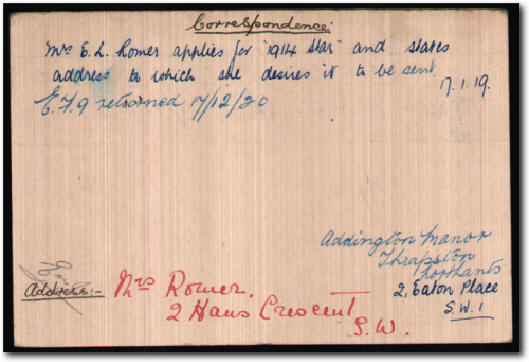 Correspondence.
Mrs E. L. Romer applies for "1914 Star" and states
address to which she desires it to be sent.
17.1.19.
E.F.9 returned 17/12/20
Addington Manor
Thrapston
Northants
2, Eaton Place
S.W.1
Address:-
Mrs Romer.
2 Hans Crescent
S.W.